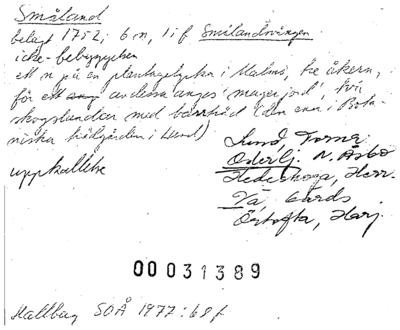 Småland
belagt 1752; 6 n, 1 i f Smålandsvången
icke-bebyggelsen
ett n på en plantagelycka i Malmö, tre åkern,
för ett av dessa anges "mager jord", två
skogslundar med barrträd (den ena i Bota-
niska trädgården i Lund)
uppkallelse
Lund, Torna
Österlj. N. Åsbo
Hedeskoga, Herr.
Vä, Gärds
Örtofta, Harj.
00031389
Hallberg SOÅ 1977: 68 f